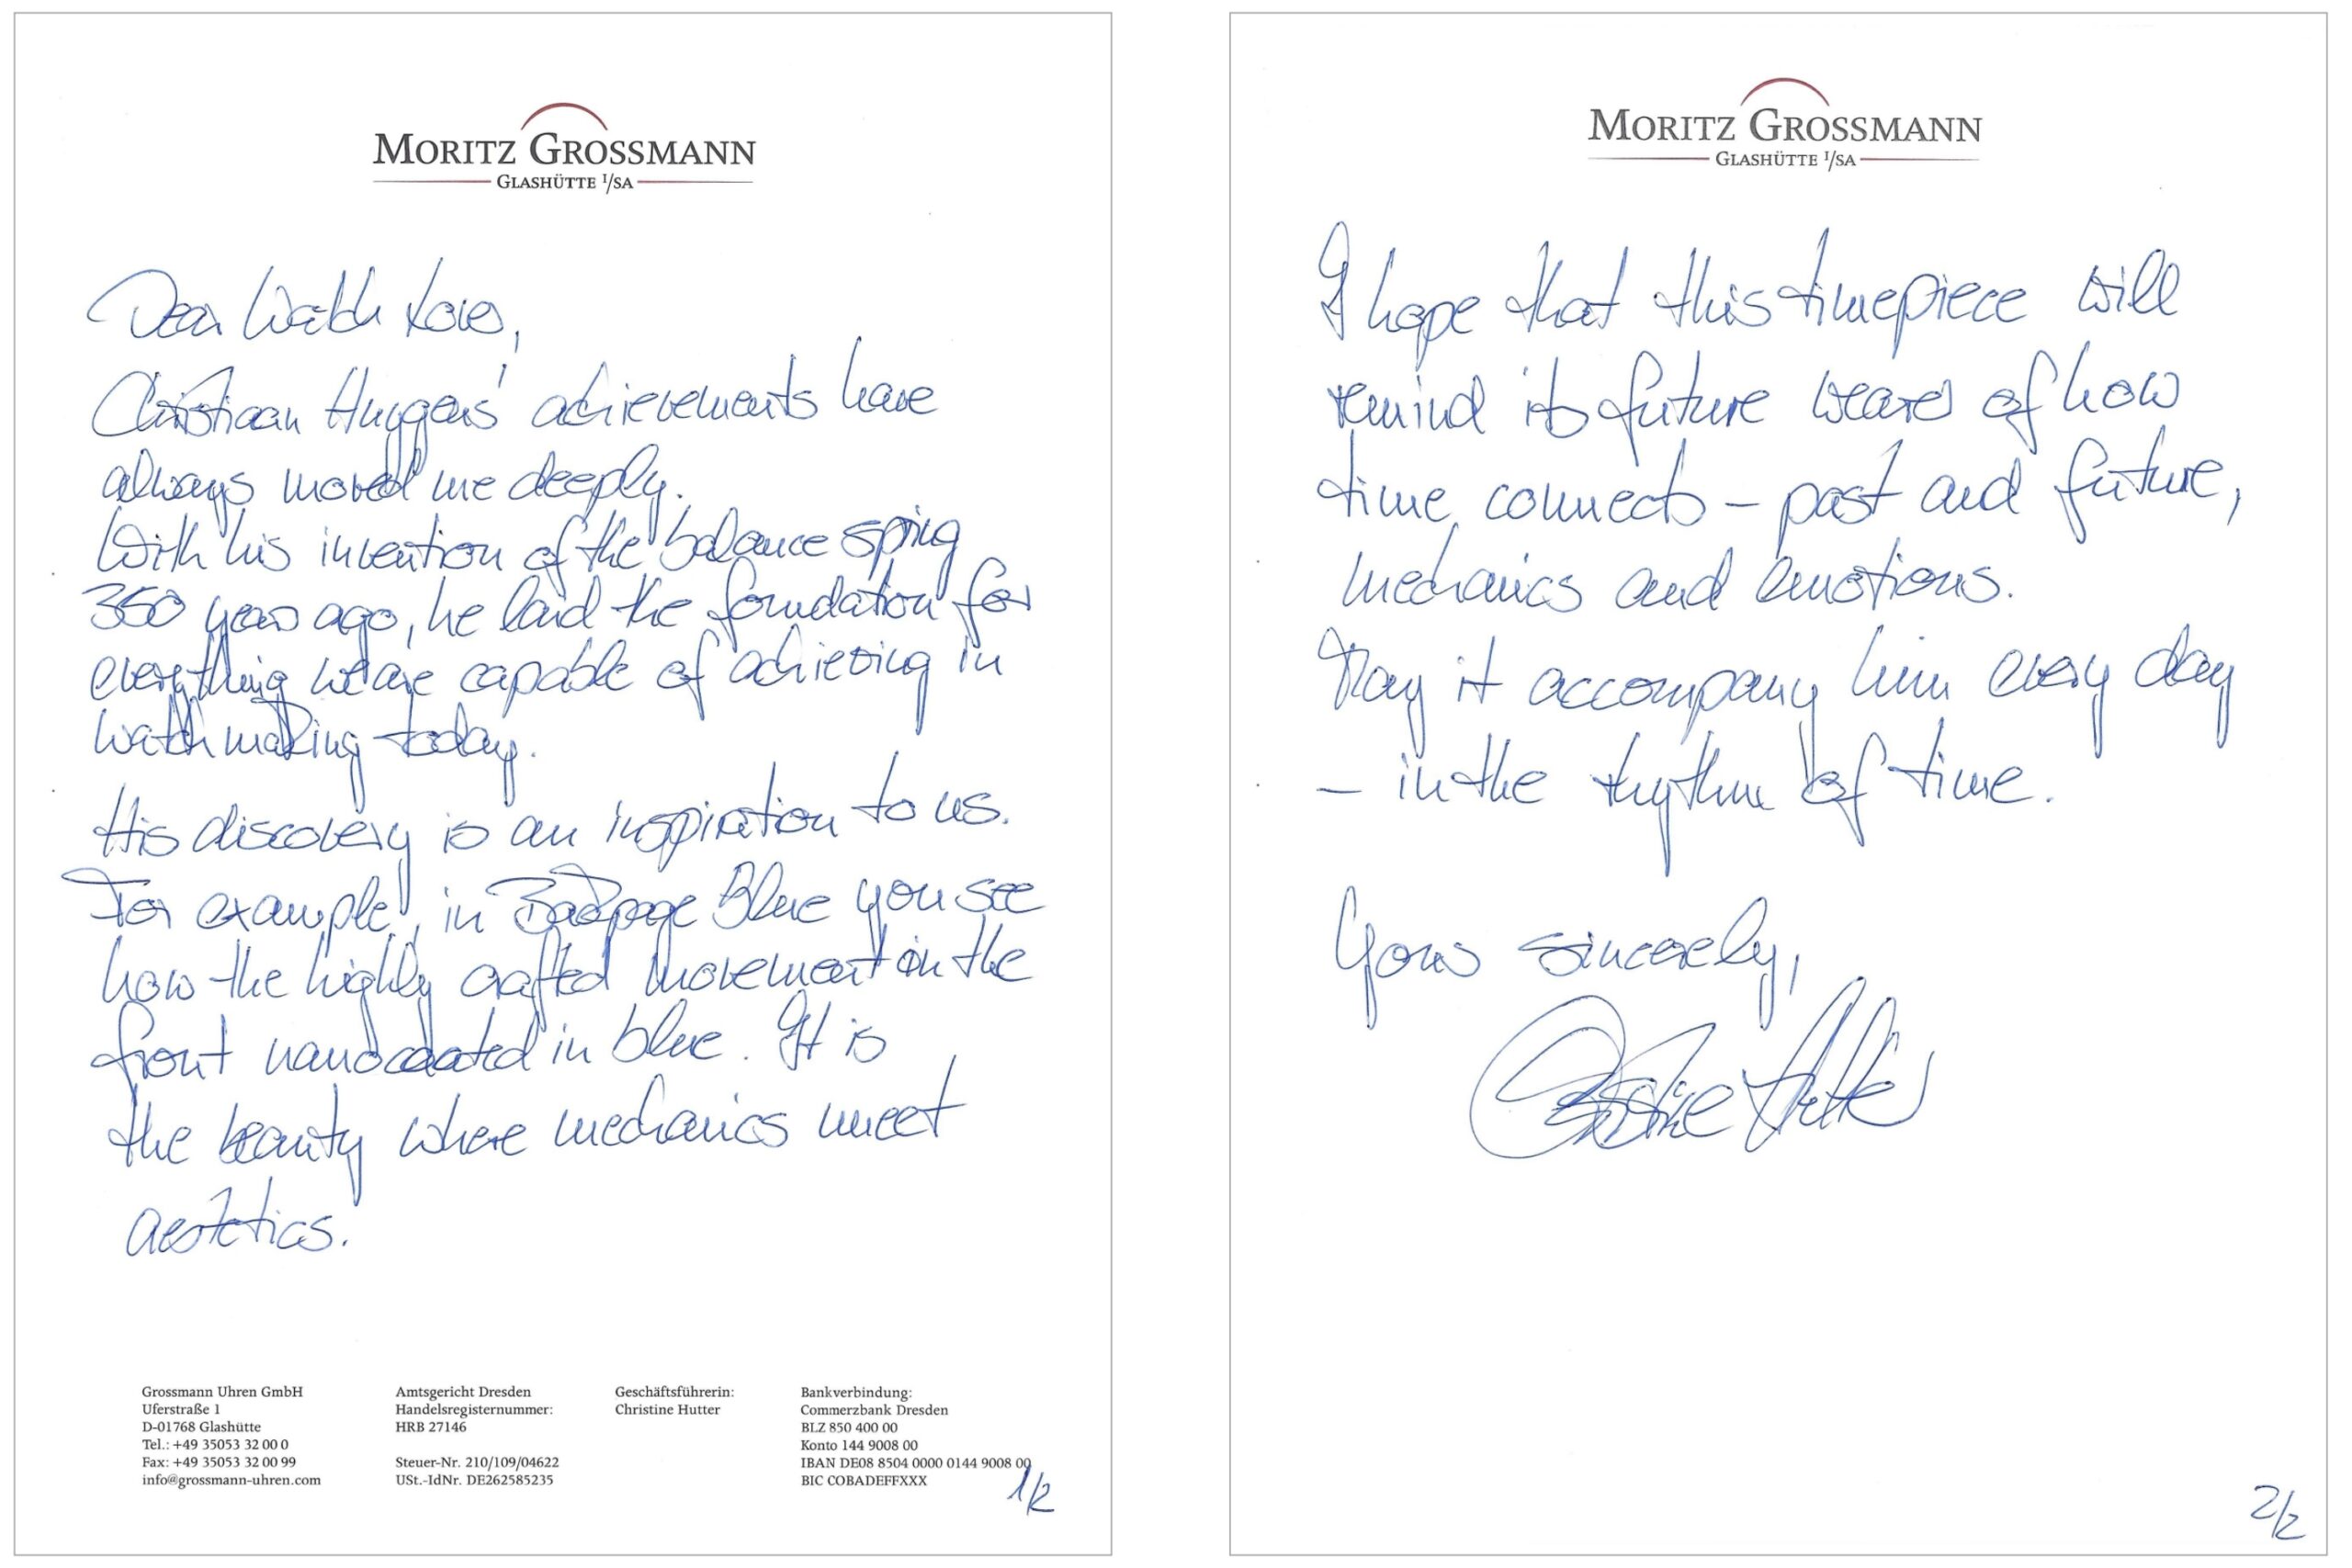 MORITZ GROSSMANN
GLASHÜTTE I/SA
Dear Watch Lover,
Christiaan Huygens' achievements have
always moved me deeply.
With his invention of the balance spring
350 years ago, he laid the foundation for
everything we are capable of achieving in
watchmaking today.
His discovery is an inspiration to us.
For example, in Backpage Blue you see
how the highly crafted movement in the
front handcoated in blue. It is
the beauty where mechanics meet
aestetics.
Grossmann Uhren GmbH
Uferstraße 1
D-01768 Glashütte
Tel.: +49 35053 32 00 0
Fax: +49 35053 32 00 99
info@grossmann-uhren.com
Amtsgericht Dresden
Handelsregisternummer:
HRB 27146
Steuer-Nr. 210/109/04622
USt.-IdNr. DE262585235
Geschäftsführerin:
Christine Hutter
Bankverbindung:
Commerzbank Dresden
BLZ 850 400 00
Konto 144 9008 00
IBAN DE08 8504 0000 0144 9008 00
BIC COBADEFFXXX
1/2
MORITZ GROSSMANN
GLASHÜTTE I/SA
I hope that this timepiece will
remind its future wearer of how
time connects – past and future,
mechanics and emotions.
May it accompany him every day
– in the rhythm of time.
Yours sincerely,
Christine Hutter
2/2